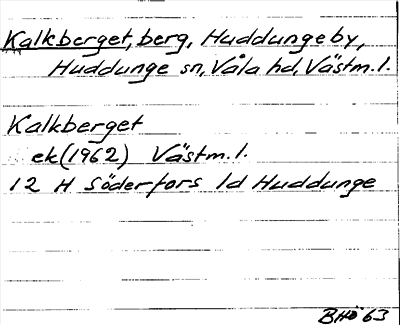 Kalkberget, berg, Huddungeby,
Huddunge sn, Våla hd, Västm. l.
Kalkberget
ek (1962) Västm. l.
12 H Söderfors 1d Huddunge
BHö 63